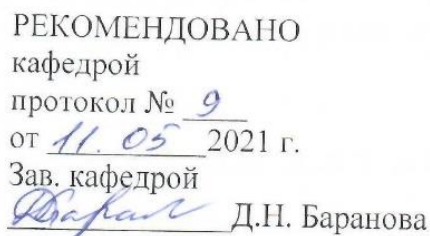 РЕКОМЕНДОВАНО
кафедрой
протокол № 9
от 11. 05 2021 г.
Зав. кафедрой
Д.Н. Баранова